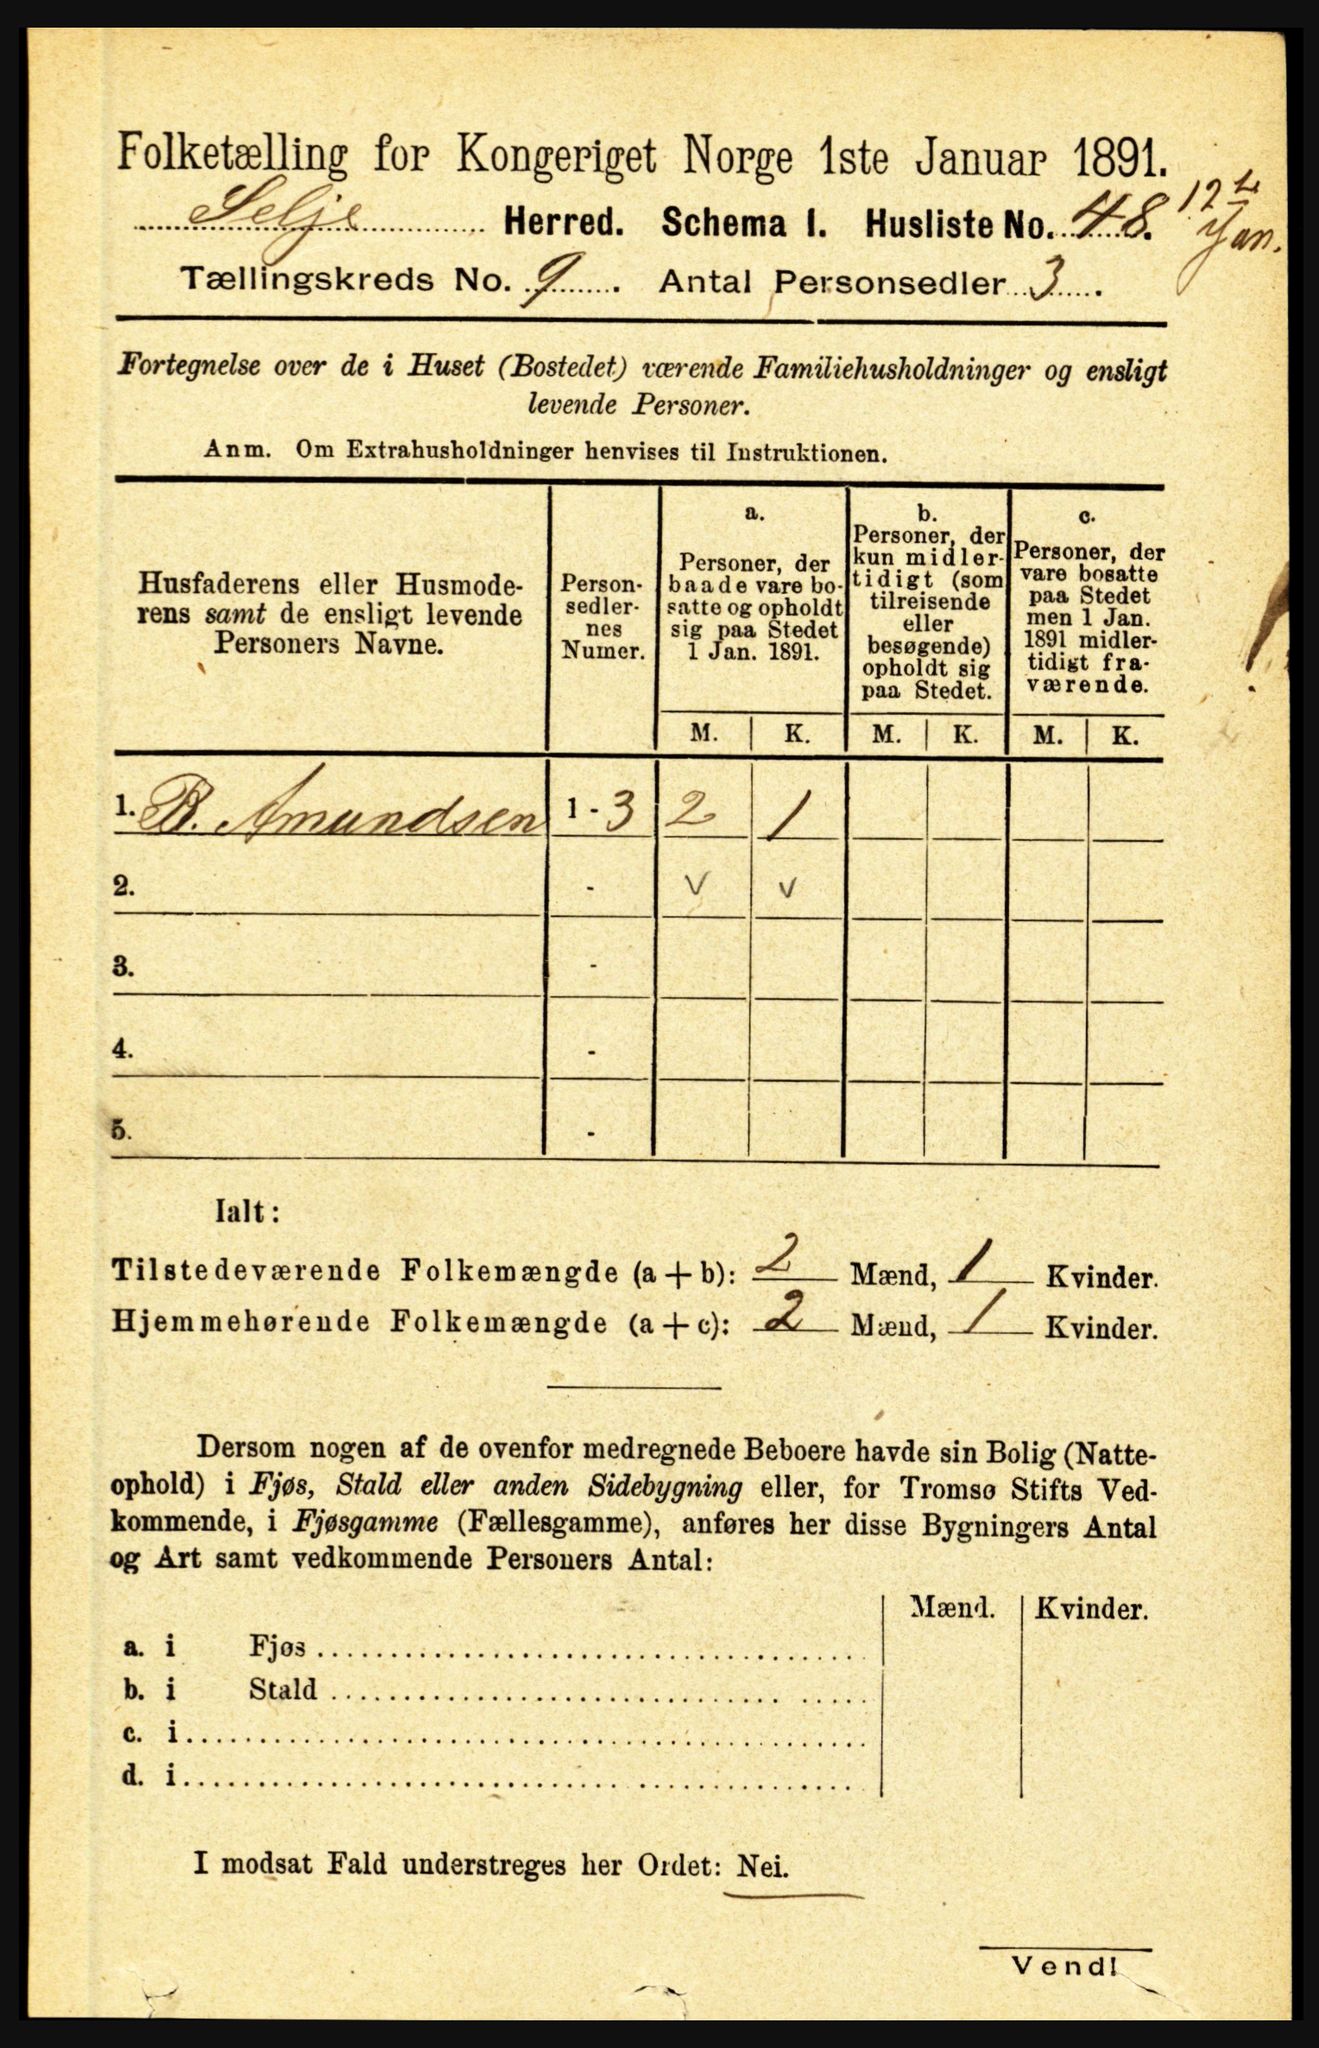 Folketælling for Kongeriget Norge 1ste Januar 1891.
Selje Herred. Schema I. Husliste No. 48. 12te Jan.
Tællingskreds No. 9. Antal Personsedler 3.
Fortegnelse over de i Huset (Bostedet) værende Familiehusholdninger og ensligt
levende Personer.
Anm. Om Extrahusholdninger henvises til Instruktionen.
Husfaderens eller Husmode-
rens samt de ensligt levende
Personers Navne.
Person-
sedler-
nes
Numer.
a.
Personer, der
baade vare bo-
satte og opholdt
sig paa Stedet
1 Jan. 1891.
b.
Personer, der
kun midler-
tidigt (som
tilreisende
eller
besøgende)
opholdt sig
paa Stedet.
c.
Personer, der
vare bosatte
paa Stedet
men 1 Jan.
1891 midler-
tidigt fra-
værende.
M. K. M. K. M. K.
1. B. Amundsen 1 - 3 2 1
2. - v v
3. -
4. -
5. -
Ialt:
Tilstedeværende Folkemængde (a + b): 2 Mænd, 1 Kvinder.
Hjemmehørende Folkemængde (a + c): 2 Mænd, 1 Kvinder.
Dersom nogen af de ovenfor medregnede Beboere havde sin Bolig (Natte-
ophold) i Fjøs, Stald eller anden Sidebygning eller, for Tromsø Stifts Ved-
kommende, i Fjøsgamme (Fællesgamme), anføres her disse Bygningers Antal
og Art samt vedkommende Personers Antal:
Mænd. Kvinder.
a. i Fjøs
b. i Stald
c. i
d. i
I modsat Fald understreges her Ordet: Nei.
Vend!